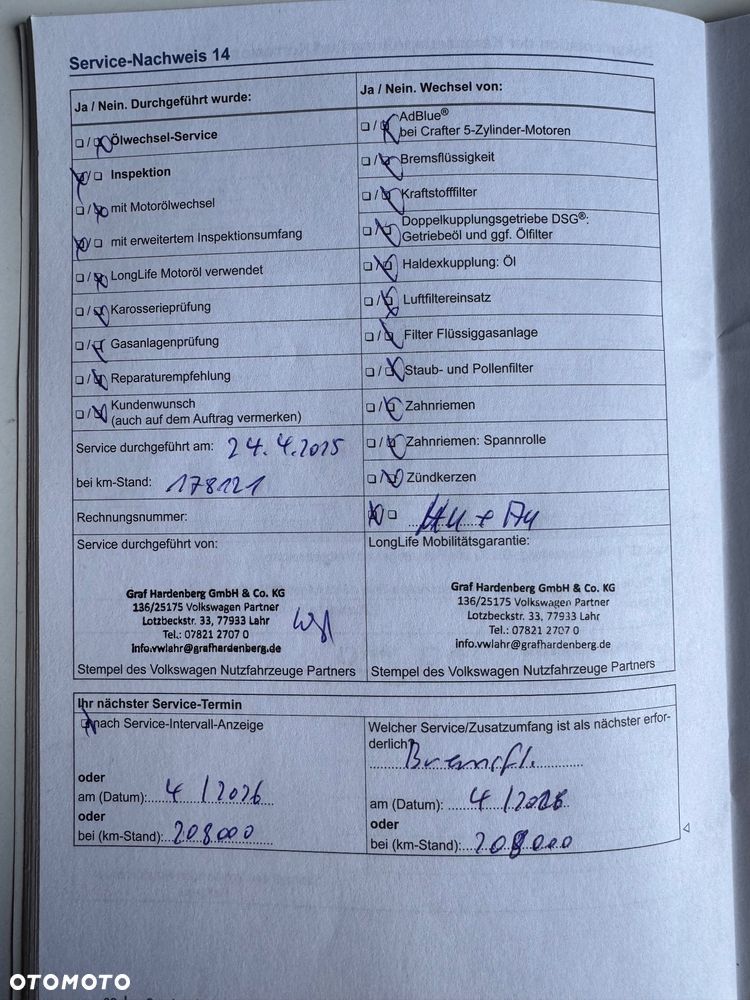 Service-Nachweis 14
Ja / Nein. Durchgeführt wurde:
Ölwechsel-Service
Inspektion
mit Motorölwechsel
mit erweitertem Inspektionsumfang
LongLife Motoröl verwendet
Karosserieprüfung
Gasanlagenprüfung
Reparaturempfehlung
Kundenwunsch
(auch auf dem Auftrag vermerken)
Service durchgeführt am: 24.4.2025
bei km-Stand: 178121
Rechnungsnummer:
Service durchgeführt von:
Graf Hardenberg GmbH & Co. KG
136/25175 Volkswagen Partner
Lotzbeckstr. 33, 77933 Lahr
Tel.: 07821 2707 0
info.vwlahr@grafhardenberg.de
Stempel des Volkswagen Nutzfahrzeuge Partners
Ja / Nein. Wechsel von:
AdBlue®
bei Crafter 5-Zylinder-Motoren
Bremsflüssigkeit
Kraftstofffilter
Doppelkupplungsgetriebe DSG®:
Getriebeöl und ggf. Ölfilter
Haldexkupplung: Öl
Luftfiltereinsatz
Filter Flüssiggasanlage
Staub- und Pollenfilter
Zahnriemen
Zahnriemen: Spannrolle
Zündkerzen
HU + AU
LongLife Mobilitätsgarantie:
Graf Hardenberg GmbH & Co. KG
136/25175 Volkswagen Partner
Lotzbeckstr. 33, 77933 Lahr
Tel.: 07821 2707 0
info.vwlahr@grafhardenberg.de
Stempel des Volkswagen Nutzfahrzeuge Partners
Ihr nächster Service-Termin
nach Service-Intervall-Anzeige
oder
am (Datum): 4/2026
oder
bei (km-Stand): 208000
Welcher Service/Zusatzumfang ist als nächster erfor-
derlich?
Bremsfl.
am (Datum): 4/2026
oder
bei (km-Stand): 208000
OTOMOTO